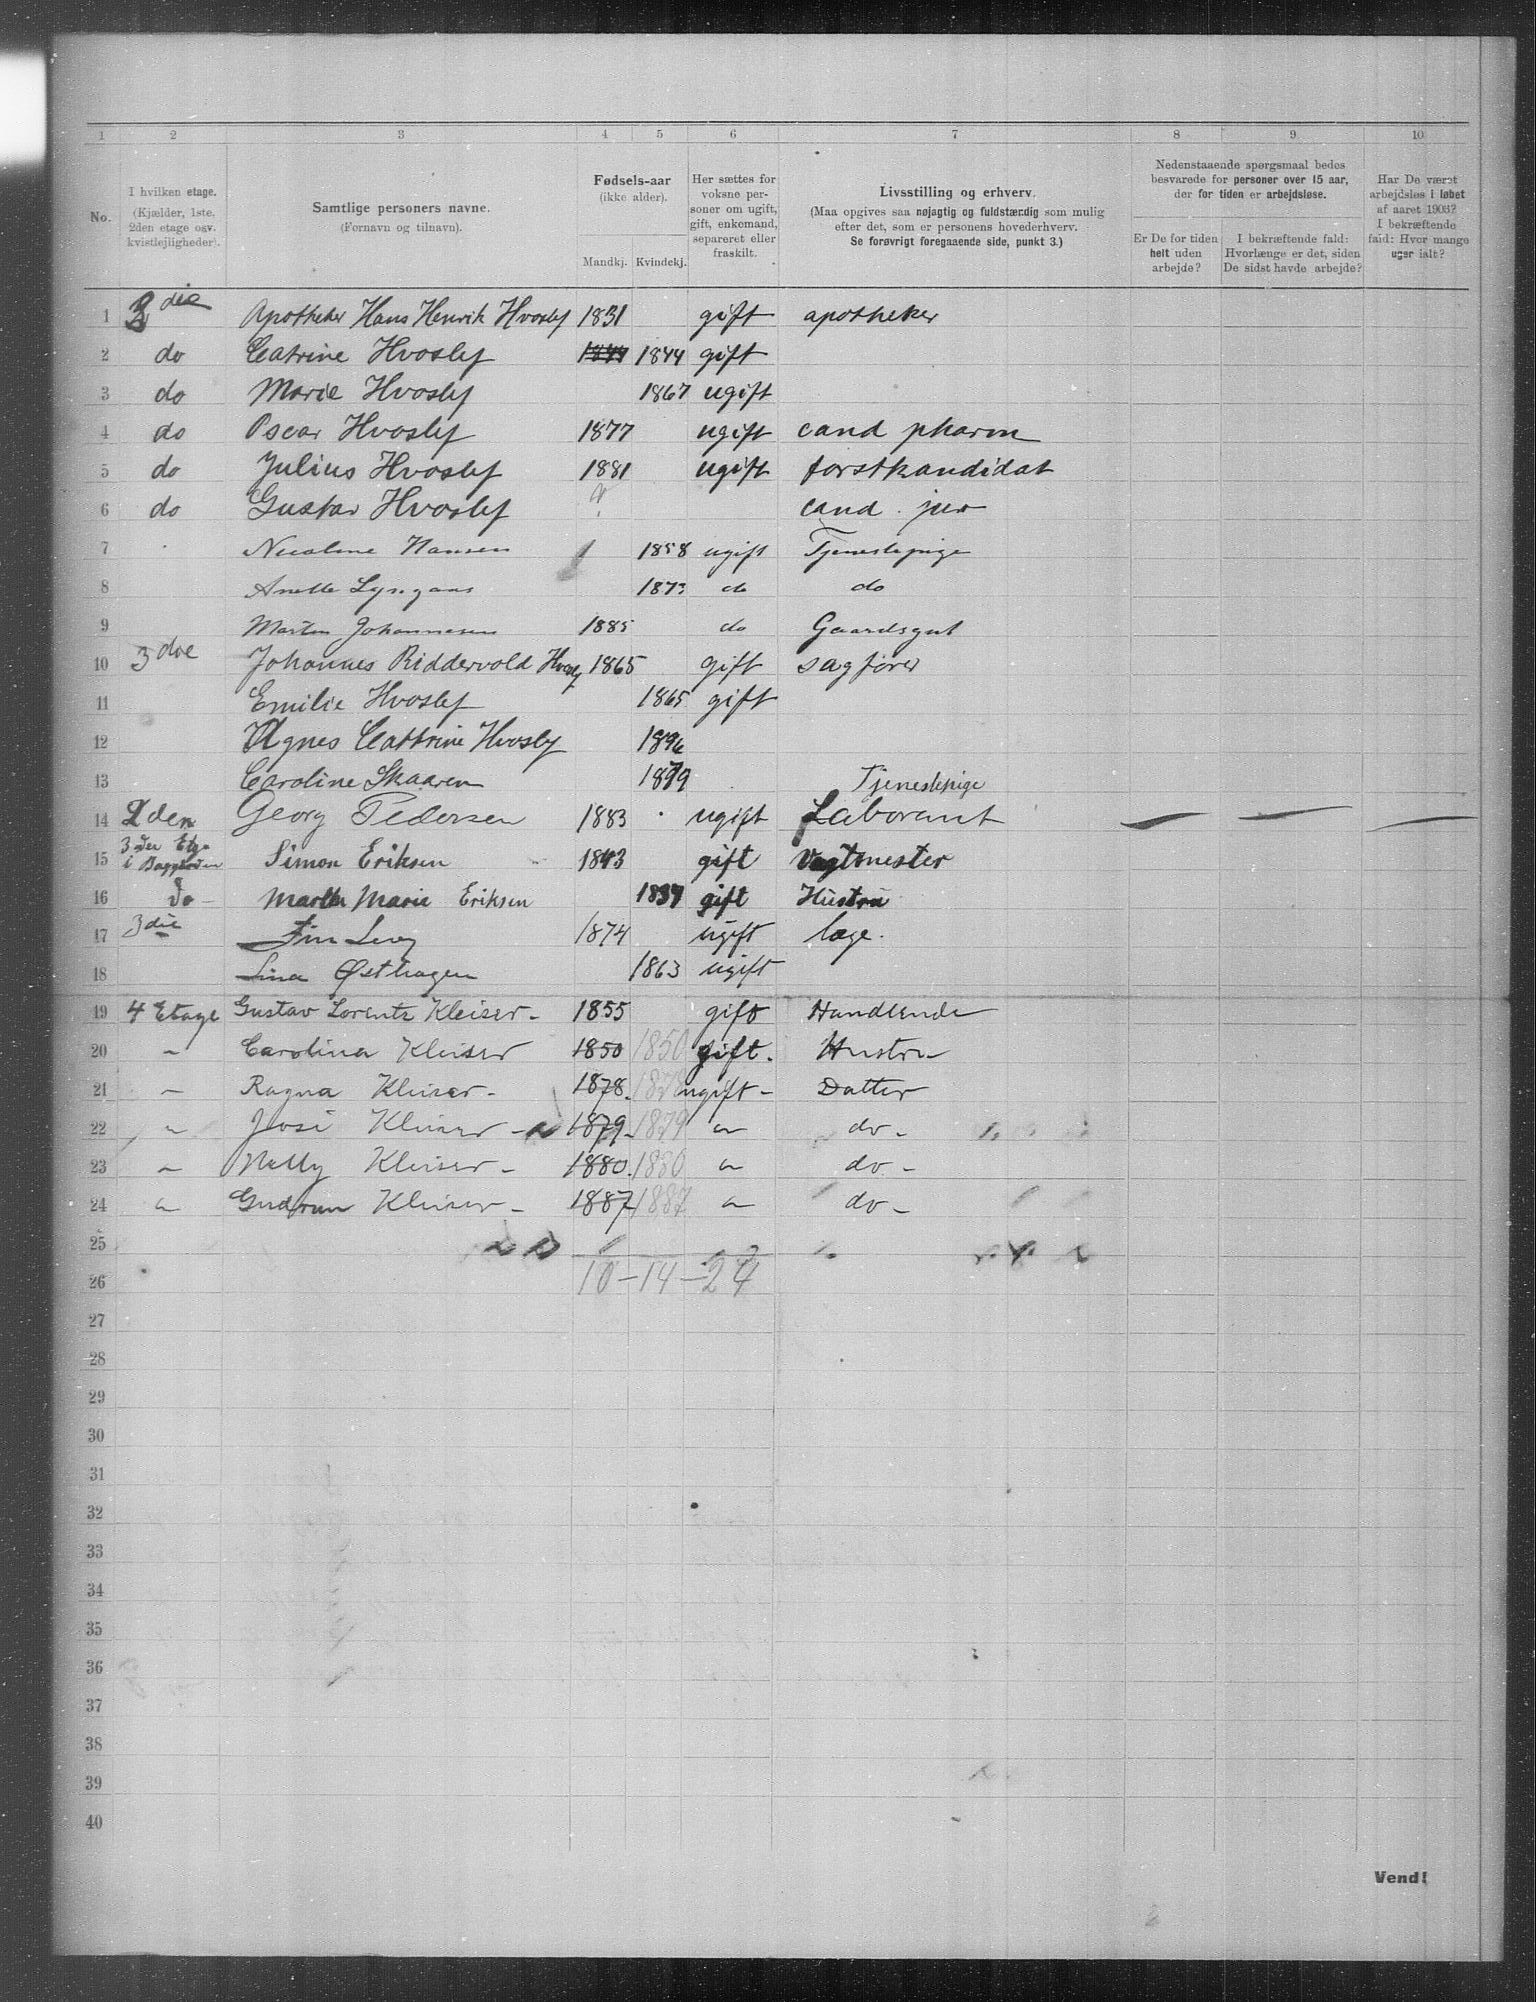 1 2 3 4 5 6 7 8 9 10
No.
I hvilken etage.
(Kjælder, 1ste,
2den etage osv.
kvistlejligheder).
Samtlige personers navne.
(Fornavn og tilnavn).
Fødsels-aar
(ikke alder).
Mandkj. Kvindekj.
Her sættes for
voksne per-
soner om ugift,
gift, enkemand,
separeret eller
fraskilt.
Livsstilling og erhverv.
(Maa opgives saa nøjagtig og fuldstændig som mulig
efter det, som er personens hovederhverv.
Se forøvrigt foregaaende side, punkt 3.)
Nedenstaaende spørgsmaal bedes
besvarede for personer over 15 aar,
der for tiden er arbejdsløse.
Er De for tiden
helt uden
arbejde?
I bekræftende fald:
Hvorlænge er det, siden
De sidst havde arbejde?
Har De været
arbejdsløs i løbet
af aaret 1903?
I bekræftende
fald: Hvor mange
uger ialt?
1 3die Apotheker Hans Henrik Hvoslef 1831 gift apotheker
2 do Catrine Hvoslef 1844 1844 gift
3 do Marie Hvoslef 1867 ugift
4 do Oscar Hvoslef 1877 ugift cand pharm
5 do Julius Hvoslef 1881 ugift forstkandidat
6 do Gustav Hvoslef ? cand. jur
7 Nicoline Hansen 1858 ugift Tjenestepige
8 Anette Lyngaas 1873 do do
9 Martin Johannesen 1885 do Gaardsgut
10 3die Johannes Riddervold Hvoslef 1865 gift sagfører
11 Emilie Hvoslef 1865 gift
12 Agnes Cathrine Hvoslef 1896
13 Caroline Skaaren 1879 Tjenestepige
14 2den Georg Pedersen 1883 ugift Laborant — — —
15 3der Etg. i Baggården Simon Eriksen 1843 gift Vagtmester
16 do - Marthe Marie Eriksen 1837 gift Hustru
17 3die Levy 1874 ugift læge.
18 Lina Østhagen 1863 ugift
19 4 Etage Gustav Lorentz Kleiser - 1855 gift Handlende
20 " Carolina Kleiser 1850 1850 gift. Hustru
21 " Ragna Kleiser - 1878. 1878 ugift - Datter
22 " Josi Kleiser - 1879. 1879 " do -
23 " Nelly Kleiser - 1880. 1880 " do -
24 " Gudrun Kleiser - 1887 1887 " do -
25
26 10 - 14 - 24
27
28
29
30
31
32
33
34
35
36
37
38
39
40
Vend!